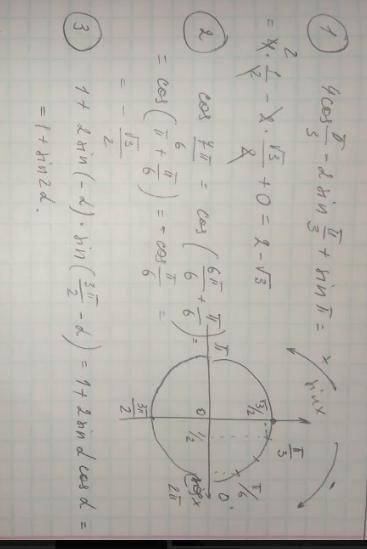 1 4cos π/3 - 2sin π/3 + sin π =
= 4 · 1/2 - 2 · √3/2 + 0 = 2 - √3
2 cos 7π/6 = cos (6π/6 + π/6) =
= cos (π + π/6) = - cos π/6 =
= - √3/2
3 1 + 2 sin (-α) · sin (3π/2 - α) = 1 + 2 sin α cos α =
= 1 + sin 2α.
sin x
√3/2
π/3
π/6
π
0
1/2
0
cos x
2π
3π/2